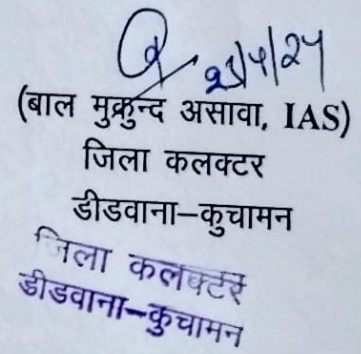 (बाल मुकुन्द असावा, IAS)
जिला कलक्टर
डीडवाना–कुचामन
जिला कलक्टर
डीडवाना–कुचामन